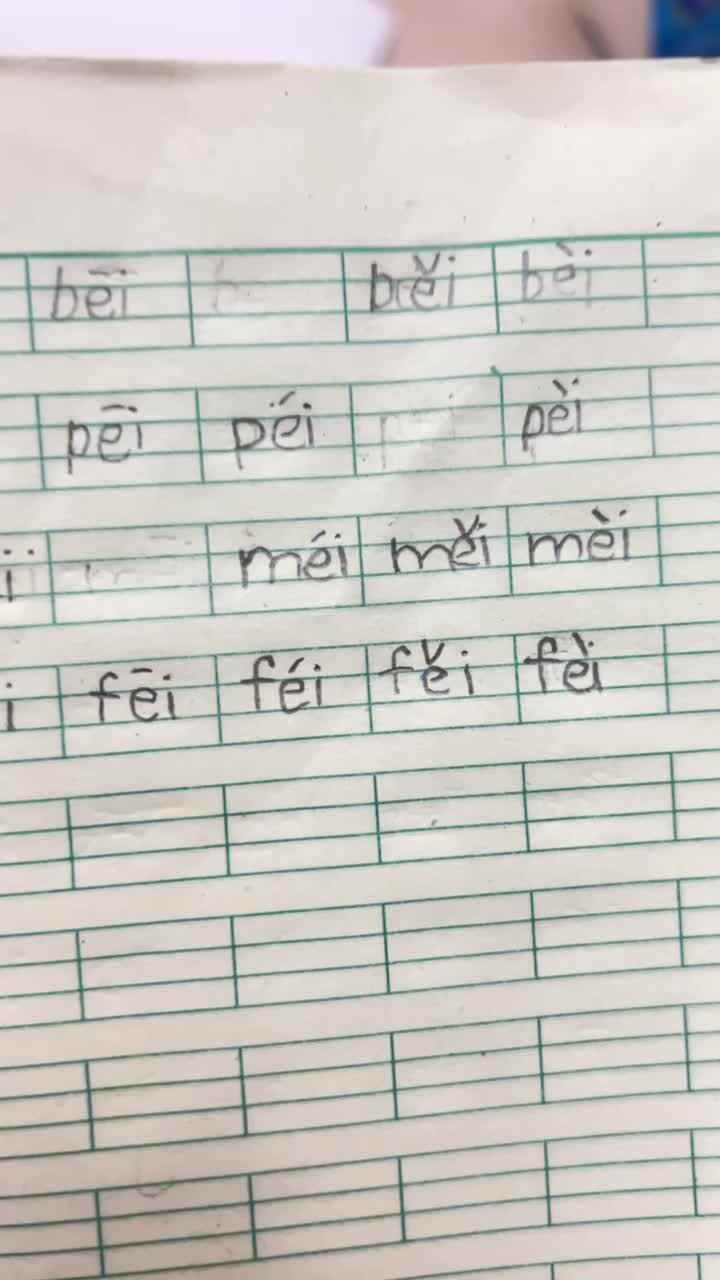 bēi běi bèi
pēi péi pèi
méi měi mèi
fēi féi fěi fèi